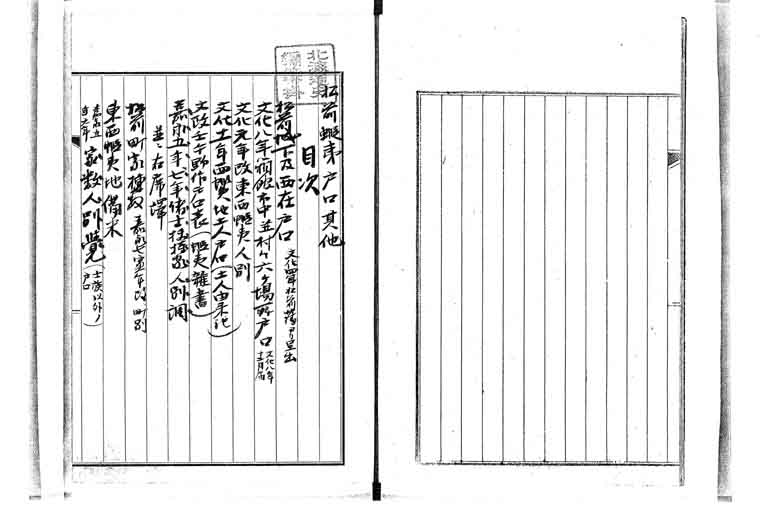 松前蝦夷戸口其他
目次
松前城下及西在戸口 文化四年松前藩ヨリ呈出
文化八年箱館市中並村々六ヶ場所戸口 文化八年十一月届
文化元年改東西蝦夷人別
文化十一年西蝦夷地土人戸口(土人由来記)
文政壬午野作戸口表(蝦夷雑書)
嘉永五年七年諸士扶持家人別調
並ニ右席帳
松前町家種数 嘉永七寅年改町別
東西蝦夷地備米
嘉永五 家数人別覚(士族以外ノ戸口)
北海道史編纂掛